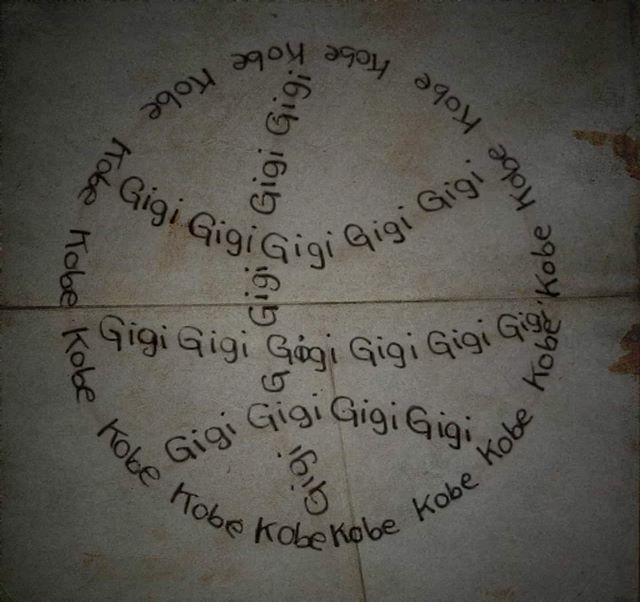 Kobe Kobe Kobe Kobe Kobe Kobe Kobe Kobe Kobe Kobe Kobe Kobe Kobe Kobe Kobe Kobe
Gigi Gigi Gigi G Gigi
Gigi Gigi Gigi Gigi Gigi
Gigi Gigi Gigi Gigi Gigi Gigi
Gigi Gigi Gigi Gigi